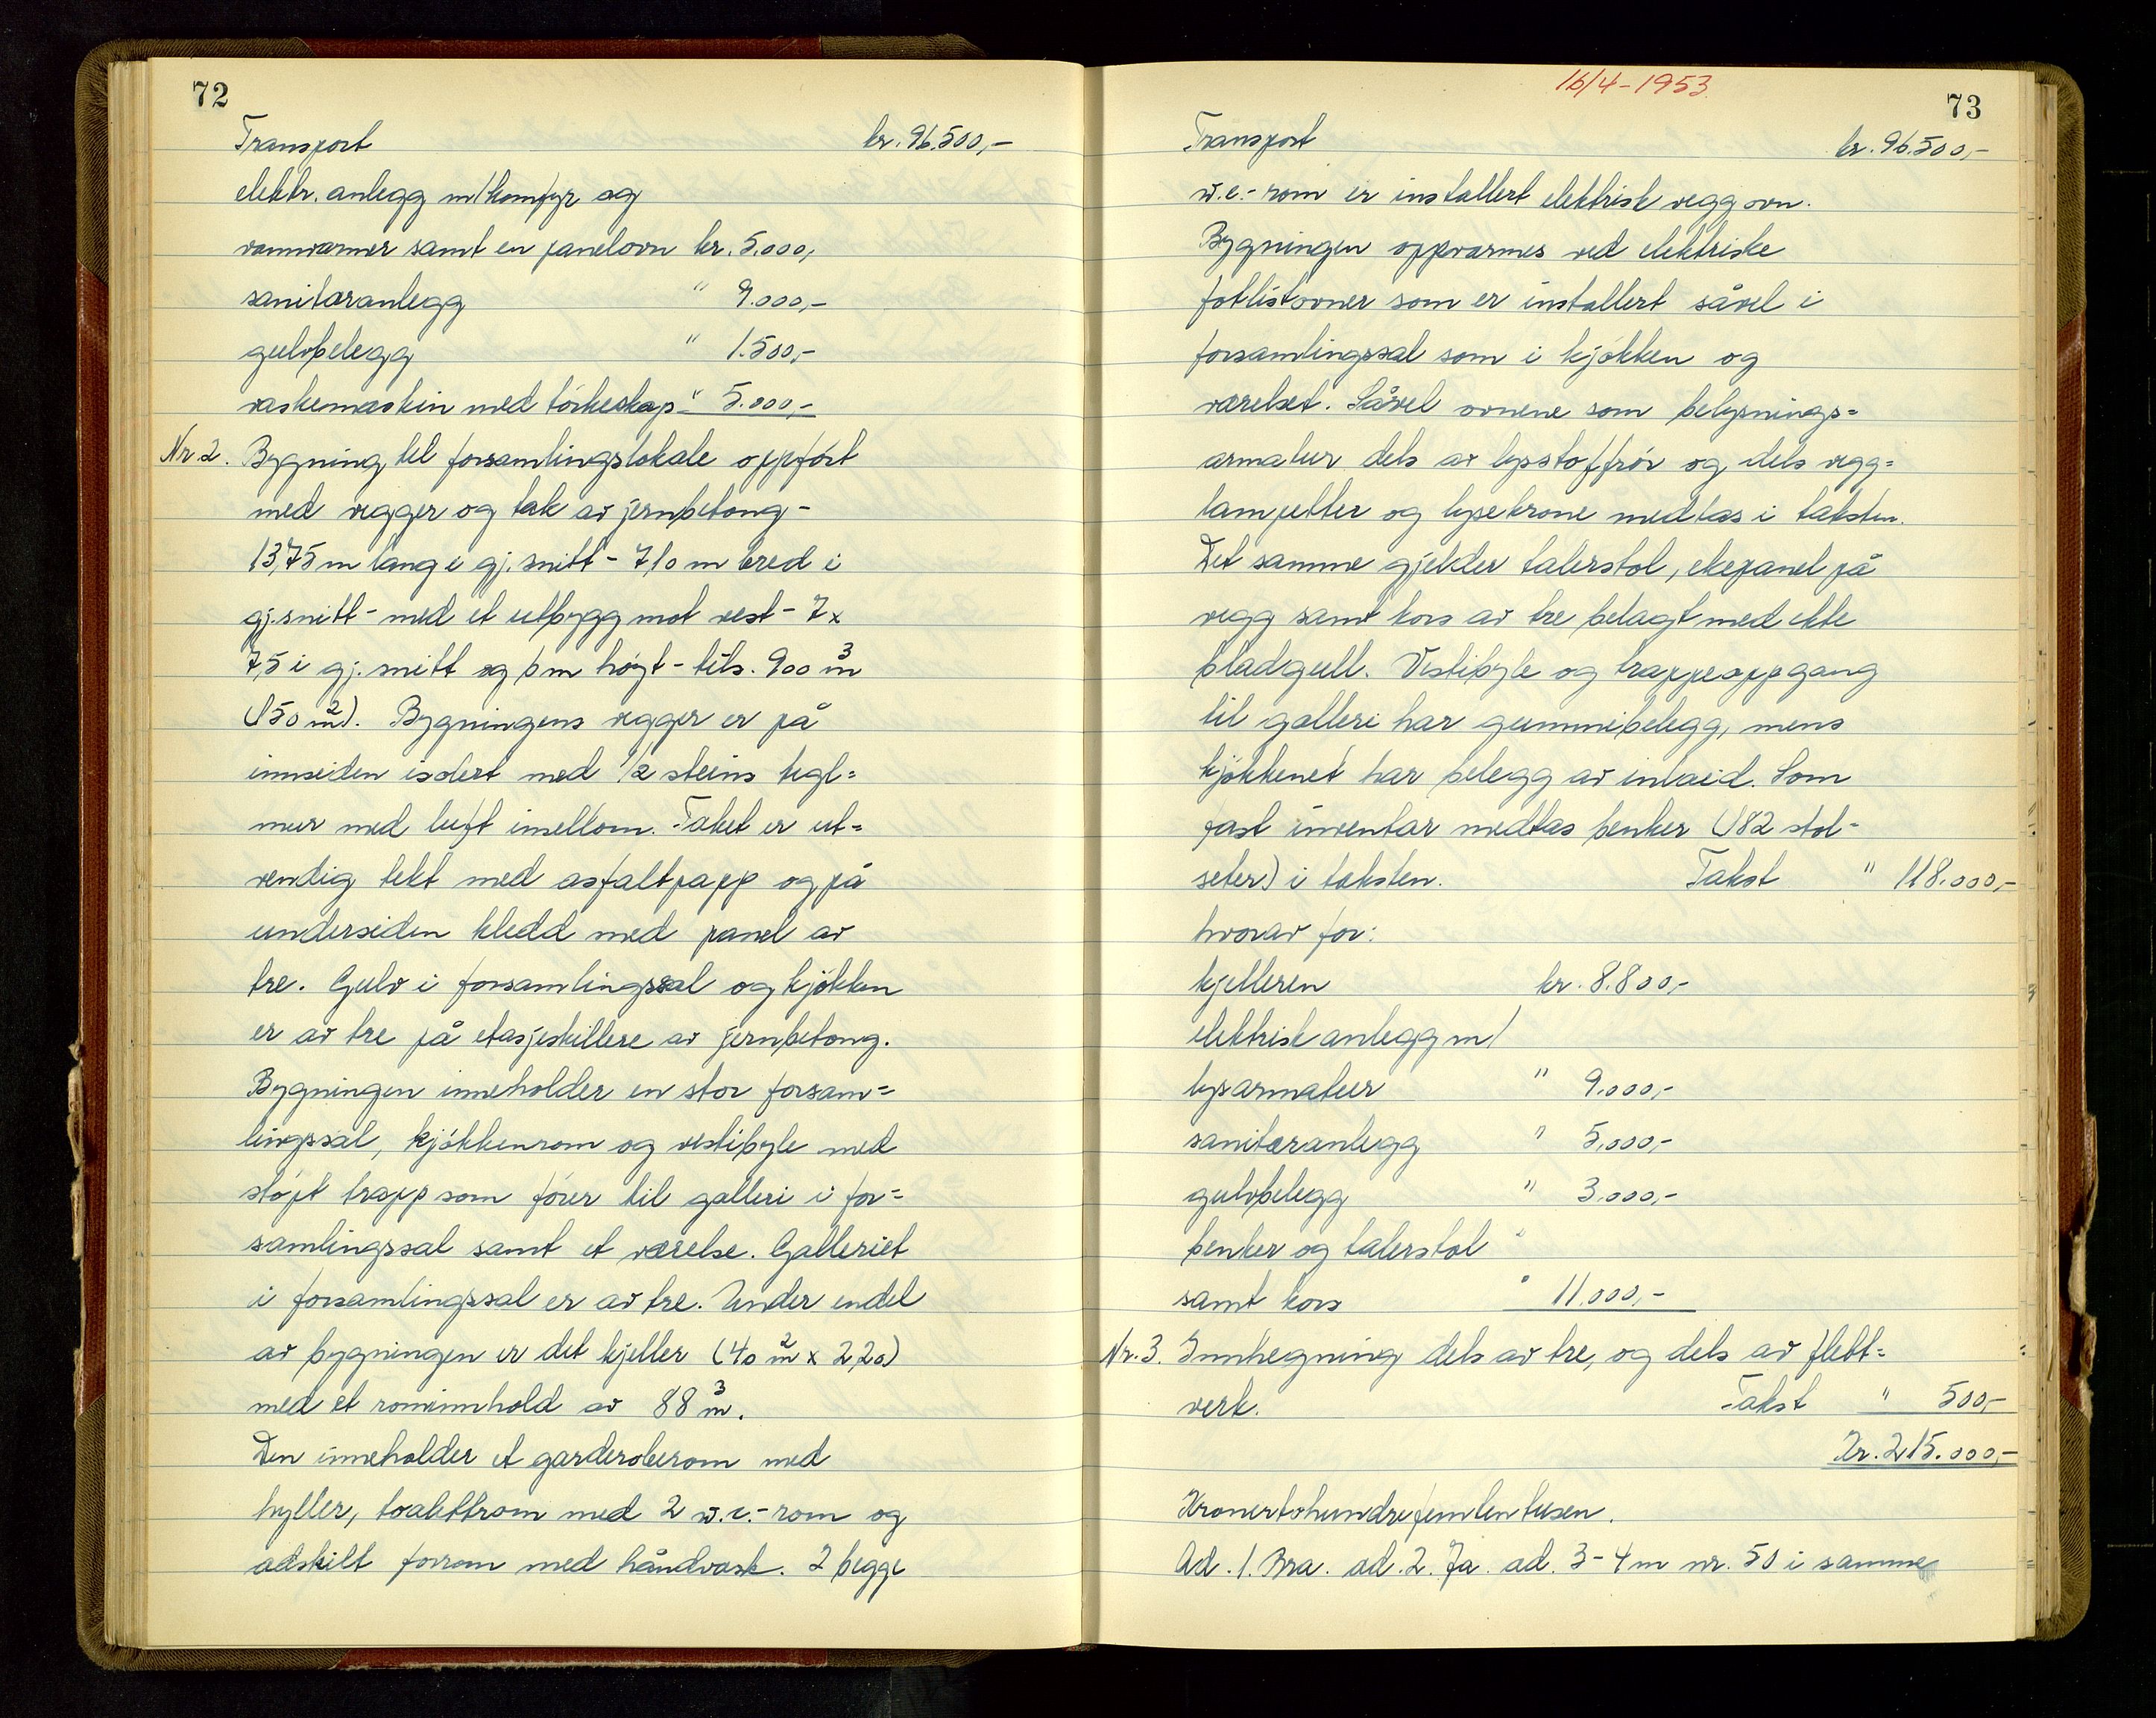 72
Transport kr. 96.500,-
elektr. anlegg m/komfyr og
vannvarmer samt en panelovn kr. 5.000,
sanitæranlegg " 9.000,-
gulvbelegg " 1.500,-
vaskemaskin med tørkeskap " 5.000,-
Nr 2. Bygning til forsamlingslokale oppført
med vegger og tak av jernbetong -
13,75 m lang i gj. snitt - 7,10 m bred i
gj. snitt - med et utbygg mot vest - 7 x
7,5 i gj. snitt og 6 m høyt - tils. 900 m³
(150 m²). Bygningens vegger er på
innsiden isolert med 1/2 steins tegl=
mur med luft imellom. Taket er ut=
vendig tekt med asfaltpapp og på
undersiden kledd med panel av
tre. Gulv i forsamlingssal og kjøkken
er av tre på etasjeskillere av jernbetong.
Bygningen inneholder en stor forsam=
lingssal, kjøkkenrom og vestibyle med
støpt trapp som fører til galleri i for=
samlingssal samt et værelse. Galleriet
i forsamlingssal er av tre. Under endel
av bygningen er det kjeller (40 m² x 2,20)
med et rominnhold av 88 m³.
Den inneholder et garderoberom med
hyller, toalettrom med 2 w.c.- rom og
adskilt forrom med håndvask. I begge
16/4 - 1953.
73
Transport kr. 96.500,-
w.c.- rom er installert elektrisk veggovn.
Bygningen oppvarmes ved elektriske
fotlistovner som er installert såvel i
forsamlingssal som i kjøkken og
værelset. Såvel ovnene som belysnings=
armatur dels av lysstoffrør og dels vegg=
lampetter og lysekrone medtas i taksten.
Det samme gjelder talerstol, ekepanel på
vegg samt kors av tre belagt med ekte
bladgull. Vestibyle og trappeoppgang
til galleri har gummibelegg, mens
kjøkkenet har belegg av inlaid. Som
fast inventar medtas benker (182 stol-
seter) i taksten. Takst " 118.000,-
hvorav for:
kjelleren kr. 8.800,-
elektrisk anlegg m/
lysarmatur " 9.000,-
sanitæranlegg " 5.000,-
gulvbelegg " 3.000,-
benker og talerstol "
samt kors " 11.000,-
Nr. 3. Innhegning dels av tre, og dels av flett=
verk. Takst " 500,-
Kr. 215.000,-
Kronertohundrefemtentusen.
Ad. 1. Bra. ad. 2. Ja. ad. 3 - 4 m nr. 50 i samme